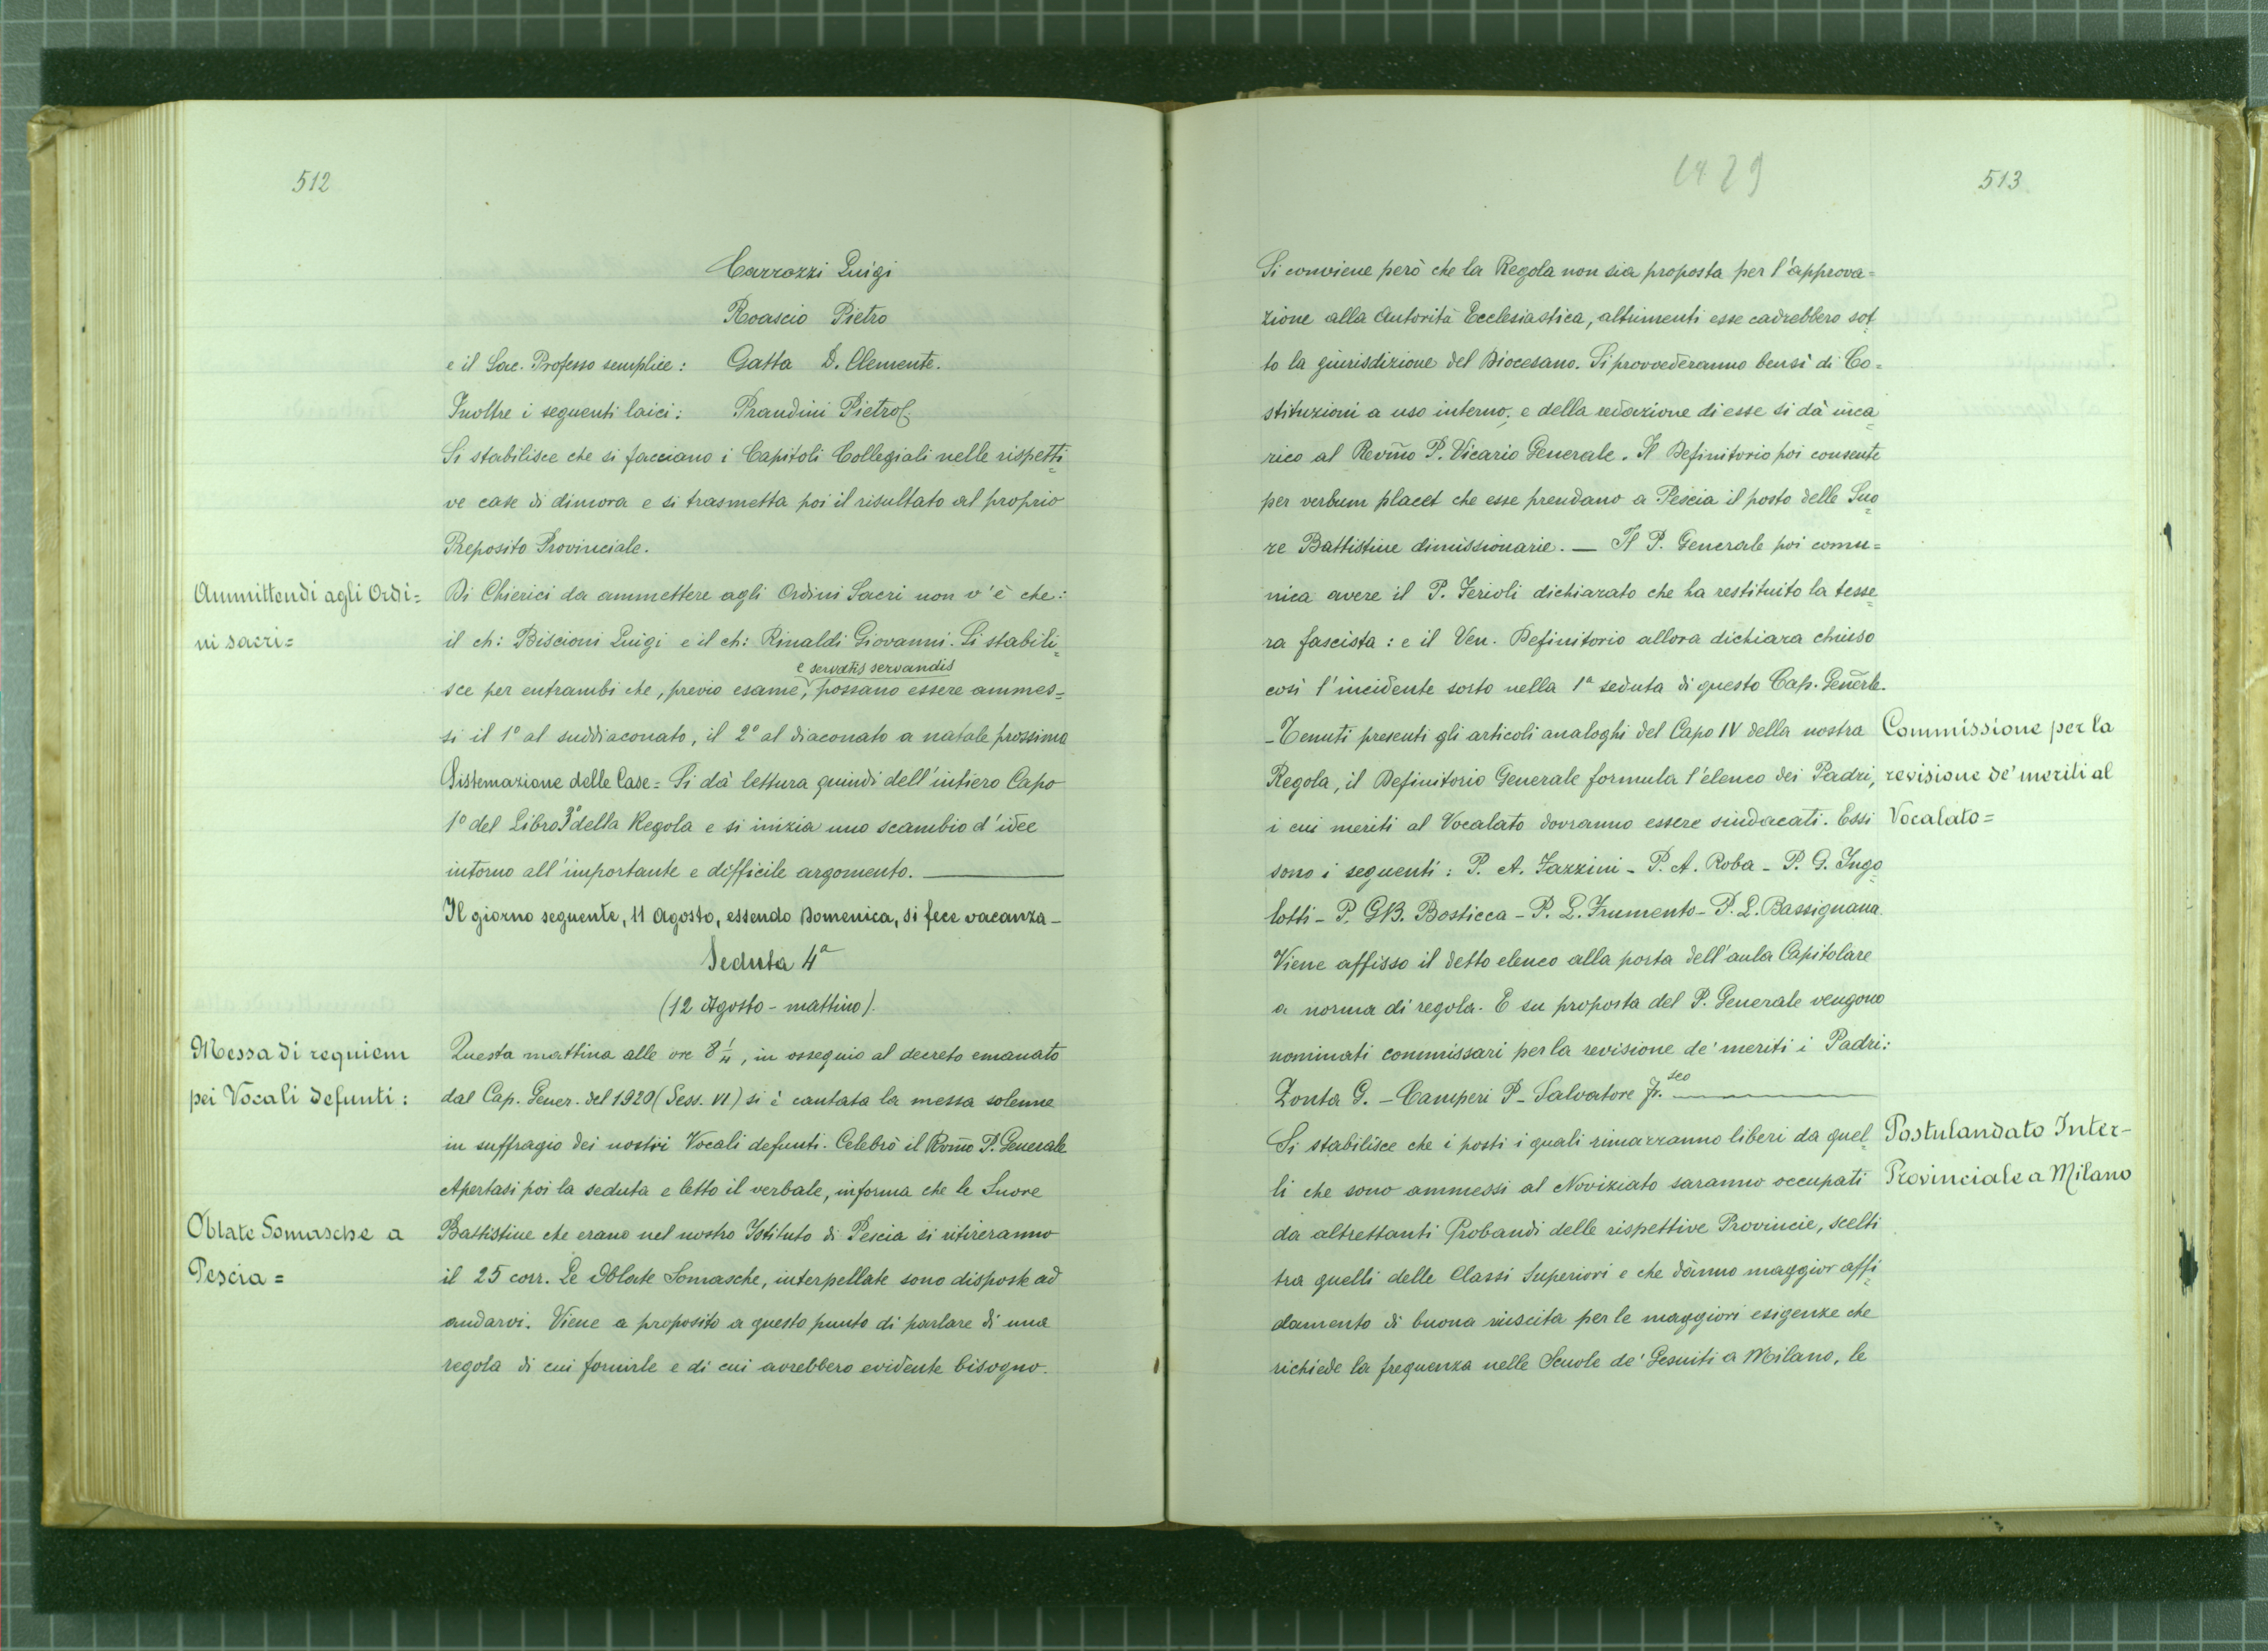 512
Carrozzi Luigi
Roascio Pietro
e il Sac. Professo semplice: Gatta D. Clemente.
Inoltre i seguenti laici: Prandini Pietro
Si stabilisce che si facciano i Capitoli Collegiali nelle rispetti=
ve case di dimora e si trasmetta poi il risultato al proprio
Preposito Provinciale.
Ammittendi agli Ordi=
ni sacri=
Di Chierici da ammettere agli Ordini Sacri non v'è che:
il ch: Biscioni Luigi e il ch: Rinaldi Giovanni. Si stabili=
e servatis servandis
sce per entrambi che, previo esame, possano essere ammes=
si il 1º al suddiaconato, il 2º al diaconato a natale prossimo
Sistemazione delle Case = Si dà lettura quindi dell'intiero Capo
1º del Libro 3º della Regola e si inizia uno scambio d'idee
intorno all'importante e difficile argomento. —
Il giorno seguente, 11 Agosto, essendo Domenica, si fece vacanza –
Seduta 4ª
(12 Agosto - mattino).
Messa di requiem
pei Vocali defunti:
Questa mattina alle ore 8 1/4, in ossequio al decreto emanato
dal Cap. Gener. del 1920 (Sess. VI) si è cantata la messa solenne
in suffragio dei nostri Vocali defunti. Celebrò il Rv̄mo P. Generale
Apertasi poi la seduta e letto il verbale, informa che le Suore
Oblate Somasche a
Pescia =
Battistine che erano nel nostro Istituto di Pescia si ritireranno
il 25 corr. Le Oblate Somasche, interpellate sono disposte ad
andarvi. Viene a proposito a questo punto di parlare di una
regola di cui fornirle e di cui avrebbero evidente bisogno.
513
Si conviene però che la Regola non sia proposta per l'approva=
zione alla Autorità Ecclesiastica, altrimenti esse cadrebbero sot
to la giurisdizione del Diocesano. Si provvederanno bensì di Co=
stituzioni a uso interno; e della redazione di esse si dà inca=
rico al Rev̄mo P. Vicario Generale. Il Definitorio poi consente
per verbum placet che esse prendano a Pescia il posto delle Suo=
re Battistine dimissionarie. — Il P. Generale poi comu=
nica avere il P. Ferioli dichiarato che ha restituito la tesse=
ra fascista: e il Ven. Definitorio allora dichiara chiuso
così l'incidente sorto nella 1ª seduta di questo Cap. Gen̄erle.
Commissione per la
revisione de' meriti al
Vocalato =
- Tenuti presenti gli articoli analoghi del Capo IV della nostra
Regola, il Definitorio Generale formula l'elenco dei Padri,
i cui meriti al Vocalato dovranno essere sindacati. Essi
sono i seguenti: P. A. Fazzini - P. A. Roba - P. G. Ingo=
lotti - P. GB. Bosticca - P. L. Frumento - P. L. Bassignana.
Viene affisso il detto elenco alla porta dell'aula Capitolare
a norma di regola. E su proposta del P. Generale vengono
nominati commissari per la revisione de' meriti i Padri:
Zonta G. - Camperi P - Salvatore Fr.sco —
Postulandato Inter-
Provinciale a Milano
Si stabilisce che i posti i quali rimarranno liberi da quel=
li che sono ammessi al Noviziato saranno occupati
da altrettanti Probandi delle rispettive Provincie, scelti
tra quelli delle Classi Superiori e che dànno maggior affi=
damento di buona riuscita per le maggiori esigenze che
richiede la frequenza nelle Scuole de' Gesuiti a Milano, le